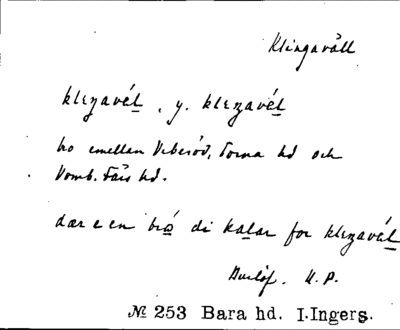 Klingavåll
klezavél, y. klezavél
bo emellan Veberöd, Torna hd och
Vomb. Färs hd.
dær e en bro di kalar for klezavél
Burlöf. U. P.
№ 253 Bara hd. I.Ingers.